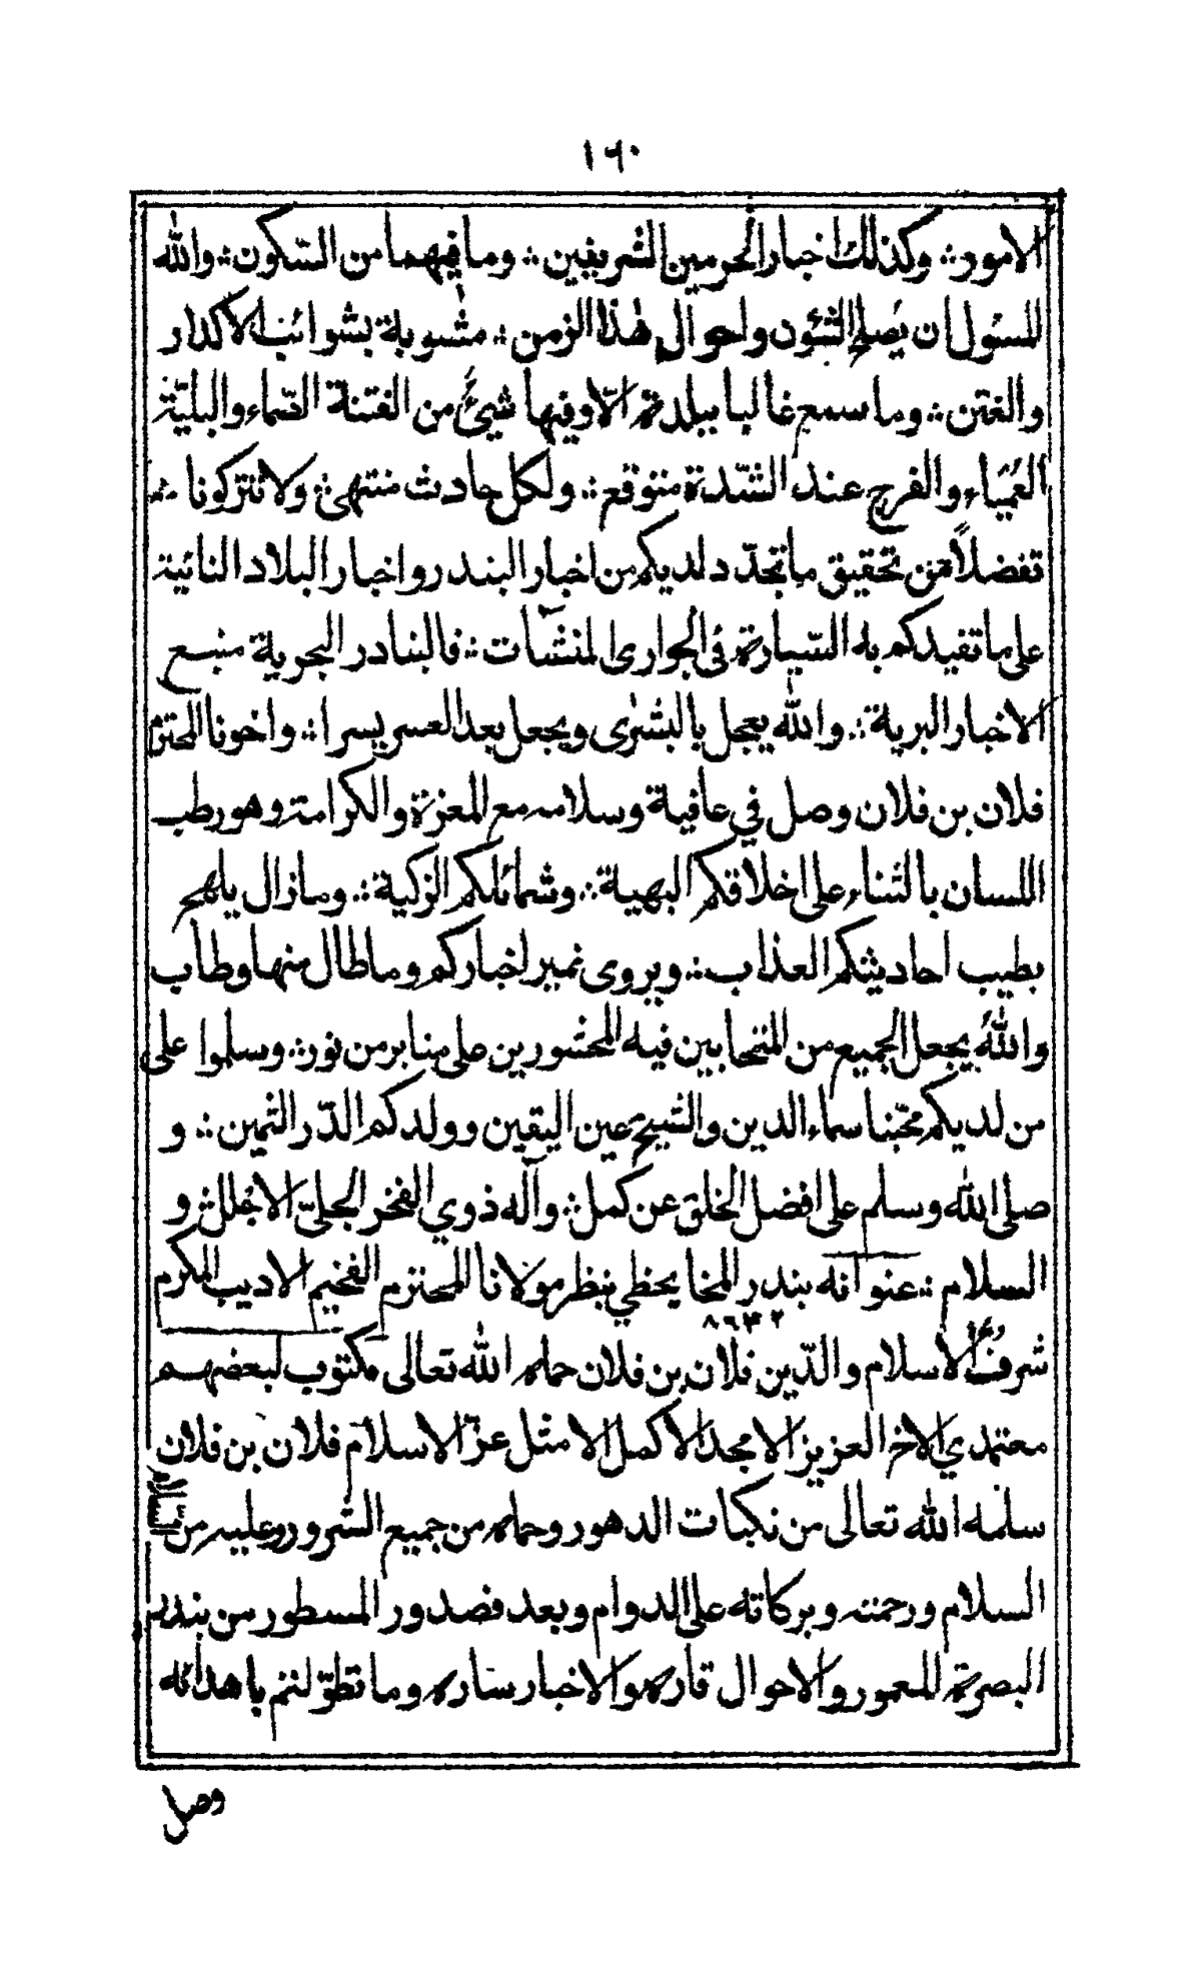 ١٦٠
الامور ؞ وكذلك اخبار الحرمين الشريفين ؞ وما فيهما من السّكون ؞ والله
المسؤل ان يُصلح الشئون واحوال هٰذا الزمن ؞ مشوبة بشوائب الاكدار
والفتن ؞ وما سمع غالبا ببلدة الّا وفيها شيئ من الفتنة الصّماء والبليّة
العُمَياء والفرج عند الشّدة متوقع ؞ ولكل حادث منتهى ؞ ولا تتركونا ؞
تفضلاً من تحقيق ما تجدّد لديكم من اخبار البندر واخبار البلاد النائية
على ما تفيدكم به السّيارة فى الجوارى المنشآت ؞ فالبنادر البحرية منبع
الاخبار البرية ؞ والله يعجل بالبشرٰى ويجعل بعد العسر يسرا ؞ واخونا المحترم
فلان بن فلان وصل في عافية وسلامه مع المعزة والكرامة وهو رطب
اللسان بالثناء على اخلاقكم البهية ؞ وشمائلكم الزكية ؞ وما زال يلهج
بطيب احاديثكم العذاب ؞ ويروى نمير اخباركم وما طال منها وطاب
واللهُ يجعل الجميع من المتحابين فيه المحشورين على منابر من نور ؞ وسلموا على
من لديكم محبّنا سماء الدين والشيخ عين اليقين وولدكم الدّر الثمين ؞ و
صلى الله وسلم على افضل الخلق عن كمل ؞ وآله ذوي الفخر الجليّ الاجلل ؞ و
السلام ؞ عنوانه بندر المخا يحظي بنظر مولانا المحترم الفخيم الاديب المكرم
٨٦٤٢
شرفُ الاسلام والدّين فلان بن فلان حماه الله تعالى مكتوب لبعضهم
معتمدي الاخ العزيز الامجد الاكمل الامثل عزّ الاسلام فلان بن فلان
سلمه الله تعالى من نكبات الدهور وحماه من جميع الشرور وعليه من
السلام ورحمته وبركاته على الدوام وبعد فصدور المسطور من بندر
البصرة المعمور والاحوال قاره والاخبار ساره وما تطوّلتم باهدائه
وصل